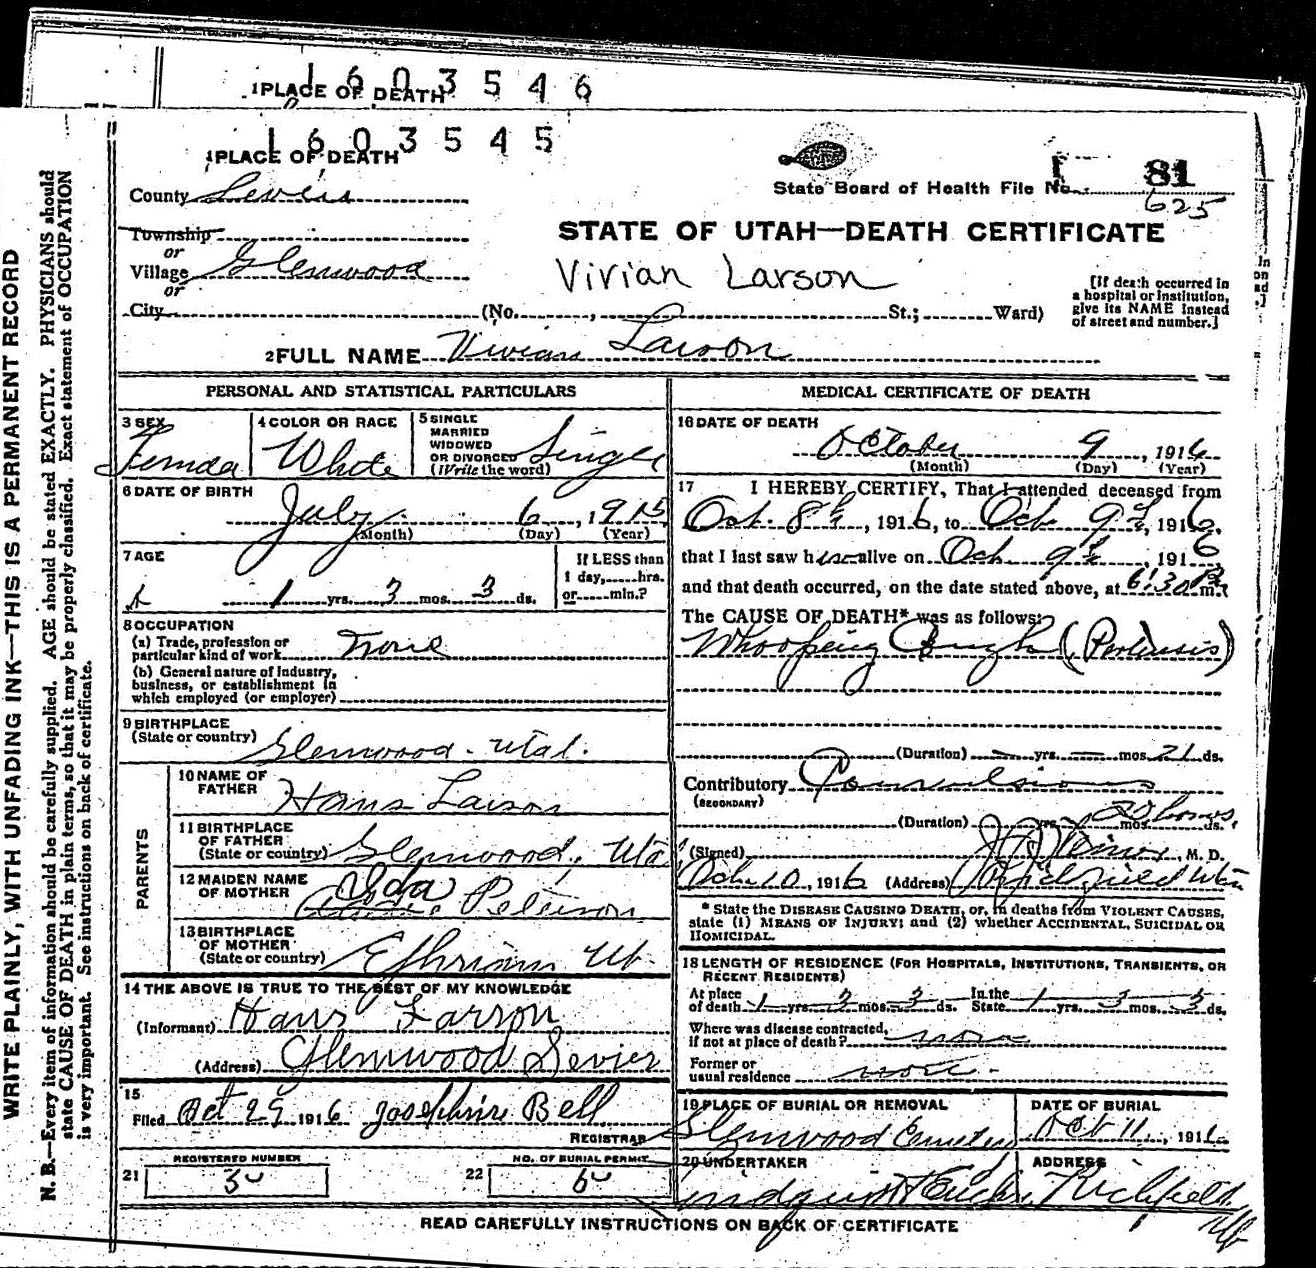 1603546
1PLACE OF DEATH
1603545
1PLACE OF DEATH
81
State Board of Health File No.
625
County Sevier
STATE OF UTAH—DEATH CERTIFICATE
Township
or
Village Glenwood
or
City
Vivian Larson
(No. , St.; Ward)
[If death occurred in
a hospital or institution,
give its NAME instead
of street and number.]
2 FULL NAME Vivian Larson
PERSONAL AND STATISTICAL PARTICULARS
3 SEX
Female
4 COLOR OR RACE
White
5 SINGLE
MARRIED
WIDOWED
OR DIVORCED
(Write the word)
Single
6 DATE OF BIRTH
July 6, 1915
(Month) (Day) (Year)
7 AGE
1 yrs. 3 mos. 3 ds.
If LESS than
1 day, hrs.
or min.?
8 OCCUPATION
(a) Trade, profession or
particular kind of work None
(b) General nature of industry,
business, or establishment in
which employed (or employer)
9 BIRTHPLACE
(State or country)
Glenwood - Utah.
PARENTS
10 NAME OF
FATHER
Hans Larson
11 BIRTHPLACE
OF FATHER
(State or country) Glenwood, Uta
12 MAIDEN NAME
OF MOTHER
Ida Peterson
13 BIRTHPLACE
OF MOTHER
(State or country) Ephriam Ut.
14 THE ABOVE IS TRUE TO THE BEST OF MY KNOWLEDGE
(Informant) Hans Larson
(Address) Glenwood Sevier
15
Filed Oct 29 1916 Josephine Bell
REGISTRAR
REGISTERED NUMBER
21
NO. OF BURIAL PERMIT
22
MEDICAL CERTIFICATE OF DEATH
16 DATE OF DEATH
October 9, 1916
(Month) (Day) (Year)
17 I HEREBY CERTIFY, That I attended deceased from
Oct. 8th, 1916, to Oct 9th, 1916,
that I last saw her alive on Oct. 9th, 1916
and that death occurred, on the date stated above, at 6:30 P.m.
The CAUSE OF DEATH* was as follows:
Whooping Cough (Pertussis)
(Duration) yrs. mos. 21 ds.
Contributory Convulsions
(SECONDARY)
(Duration) yrs. mos. ds. 20 hours.
(Signed) , M. D.
Oct 10, 1916 (Address) Richfield Utah
* State the DISEASE CAUSING DEATH, or, in deaths from VIOLENT CAUSES,
state (1) MEANS OF INJURY; and (2) whether ACCIDENTAL, SUICIDAL OR
HOMICIDAL.
18 LENGTH OF RESIDENCE (FOR HOSPITALS, INSTITUTIONS, TRANSIENTS, OR
RECENT RESIDENTS)
At place
of death 1 yrs. 3 mos. 3 ds. In the
State 1 yrs. 3 mos. 3 ds.
Where was disease contracted,
if not at place of death?
Former or
usual residence
19 PLACE OF BURIAL OR REMOVAL
Glenwood Cemetery
DATE OF BURIAL
Oct 11, 1916
20 UNDERTAKER
ADDRESS
Richfield
Ut
READ CAREFULLY INSTRUCTIONS ON BACK OF CERTIFICATE
WRITE PLAINLY, WITH UNFADING INK—THIS IS A PERMANENT RECORD
N. B.—Every item of information should be carefully supplied. AGE should be stated EXACTLY. PHYSICIANS should
state CAUSE OF DEATH in plain terms, so that it may be properly classified. Exact statement of OCCUPATION
is very important. See instructions on back of certificate.